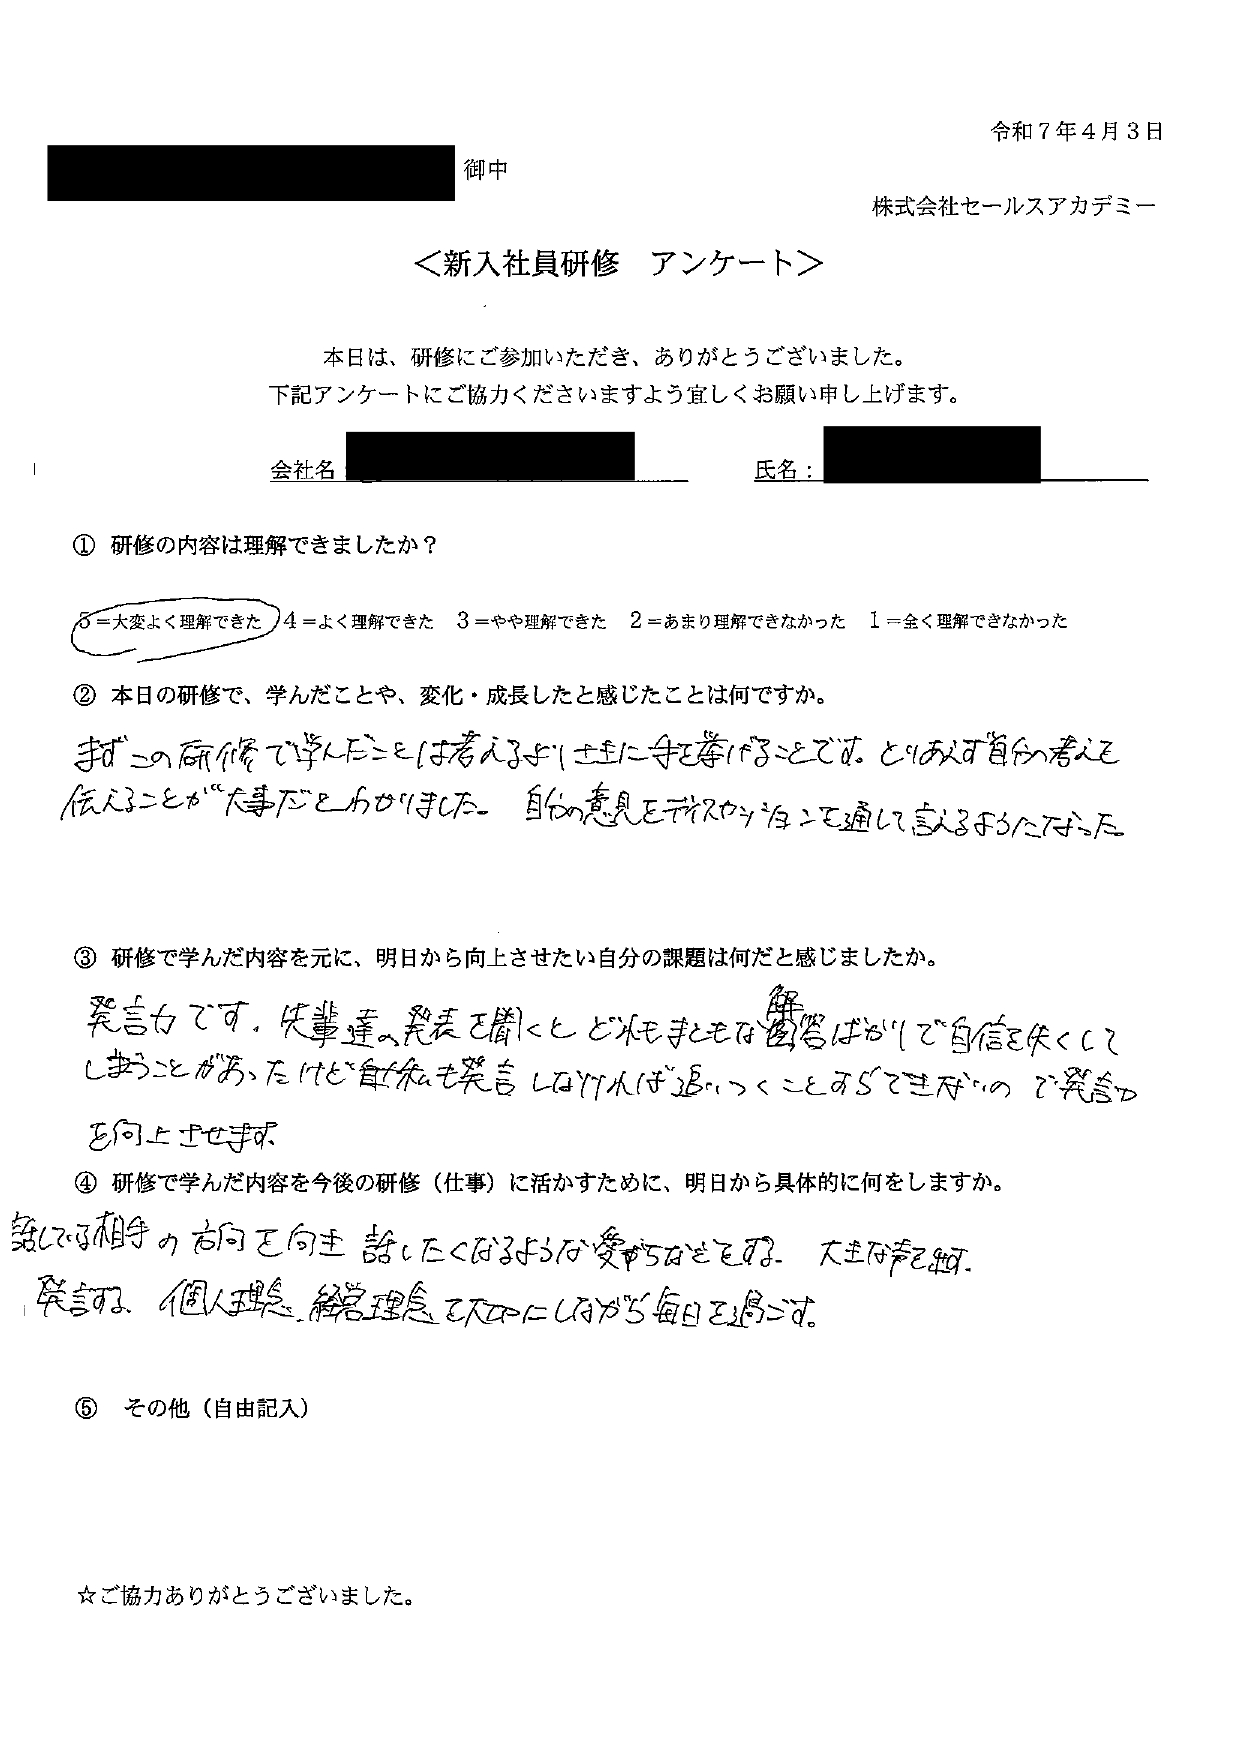 令和７年４月３日
御中
株式会社セールスアカデミー
＜新入社員研修　アンケート＞
本日は、研修にご参加いただき、ありがとうございました。
下記アンケートにご協力くださいますよう宜しくお願い申し上げます。
会社名：　氏名：
① 研修の内容は理解できましたか？
5＝大変よく理解できた　4＝よく理解できた　3＝やや理解できた　2＝あまり理解できなかった　1＝全く理解できなかった
② 本日の研修で、学んだことや、変化・成長したと感じたことは何ですか。
まずこの研修で学んだことは考えるよりさきに手を挙げることです。とりあえず自分の考えを
伝えることが大事だとわかりました。自分の意見をディスカッションを通して言えるようになった。
③ 研修で学んだ内容を元に、明日から向上させたい自分の課題は何だと感じましたか。
発言力です。先輩達の発表を聞くとどれもまともな解答ばかりで自信を失くして
しまうことがあったけど私も発言しなければ追いつくことすらできないので発言力
を向上させます。
④ 研修で学んだ内容を今後の研修（仕事）に活かすために、明日から具体的に何をしますか。
話している相手の方向を向き 話したくなるような 大きな声を出す。
発言する、個人理念、経営理念を大切にしながら毎日を過ごす。
⑤　その他（自由記入）
☆ご協力ありがとうございました。